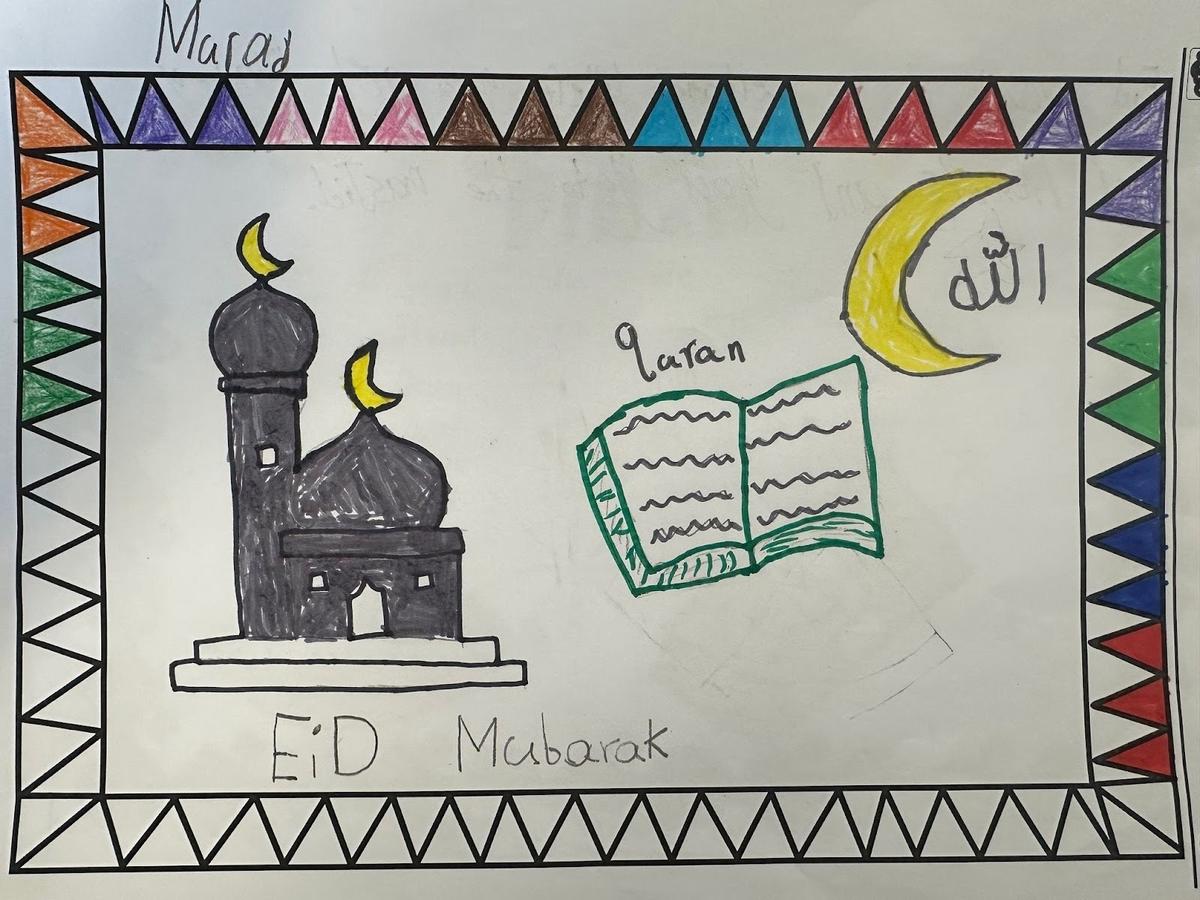 Marad
الله
quran
EiD Mubarak